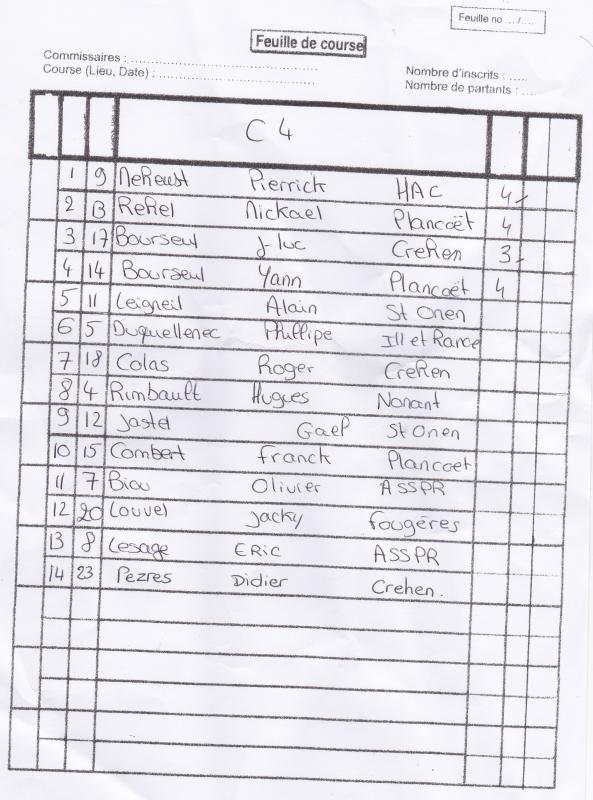 Feuille no .../...
Feuille de course
Commissaires : ................................................
Course (Lieu, Date) : ........................................
Nombre d'inscrits : .....
Nombre de partants : .....
C 4
1 9 Pierrick HAC 4
2 13 Rehel Nickael Plancoët 4
3 17 Bourseul J-luc Crehen 3
4 14 Bourseul Yann Plancoët 4
5 11 Leigneil Alain St Onen
6 5 Duquellenec Phillipe Ill et Rance
7 18 Colas Roger Crehen
8 4 Rimbault Hugues Nonant
9 12 Jastel Gael St Onen
10 15 Combert Franck Plancoet
11 7 Biou Olivier ASSPR
12 20 Louvel Jacky Fougères
13 8 Lesage ERic ASSPR
14 23 Pezres Didier Crehen.